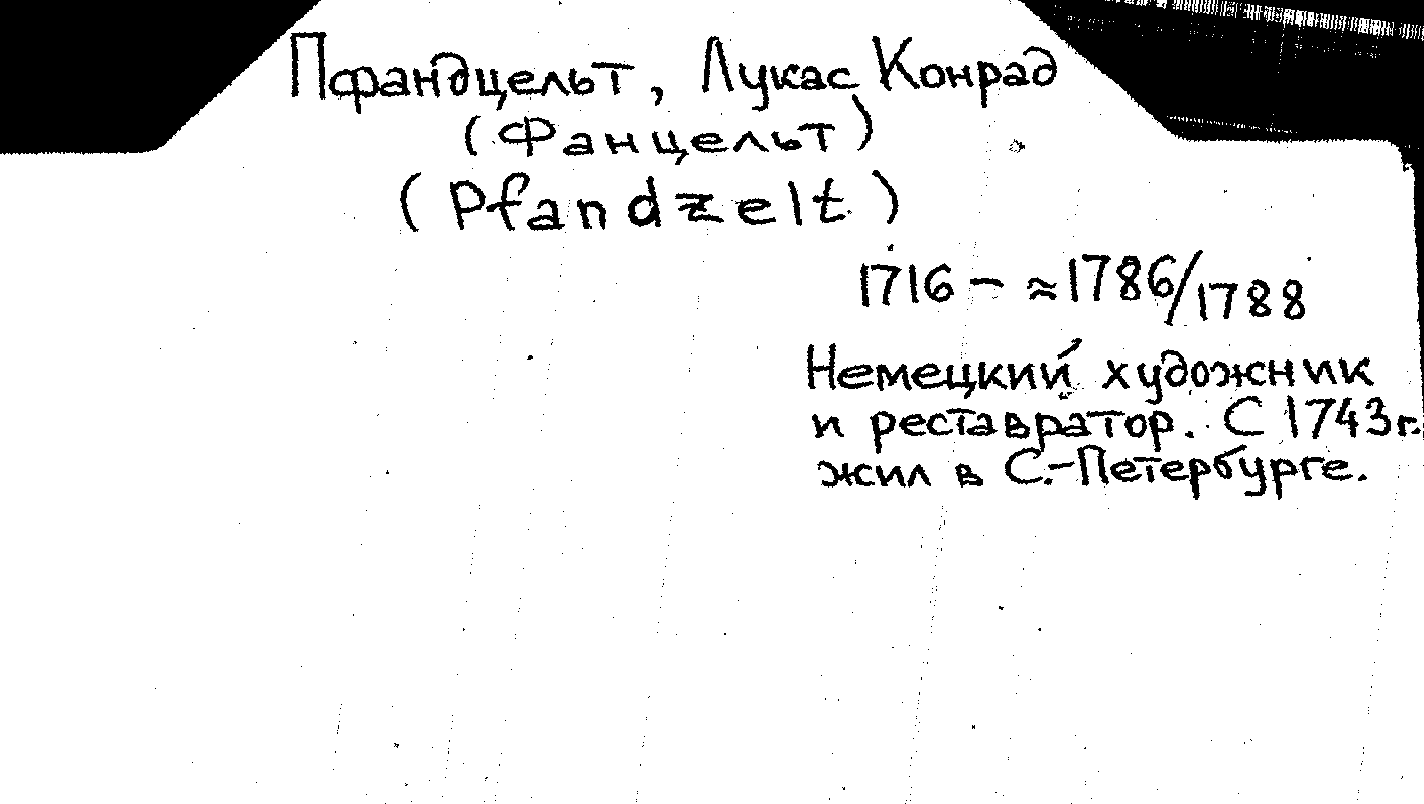 Пфандцельт, Лукас Конрад
(Фанцельт)
(Pfandzelt)
1716 - ≈1786/1788
Немецкий художник
и реставратор. С 1743г.
жил в С.-Петербурге.